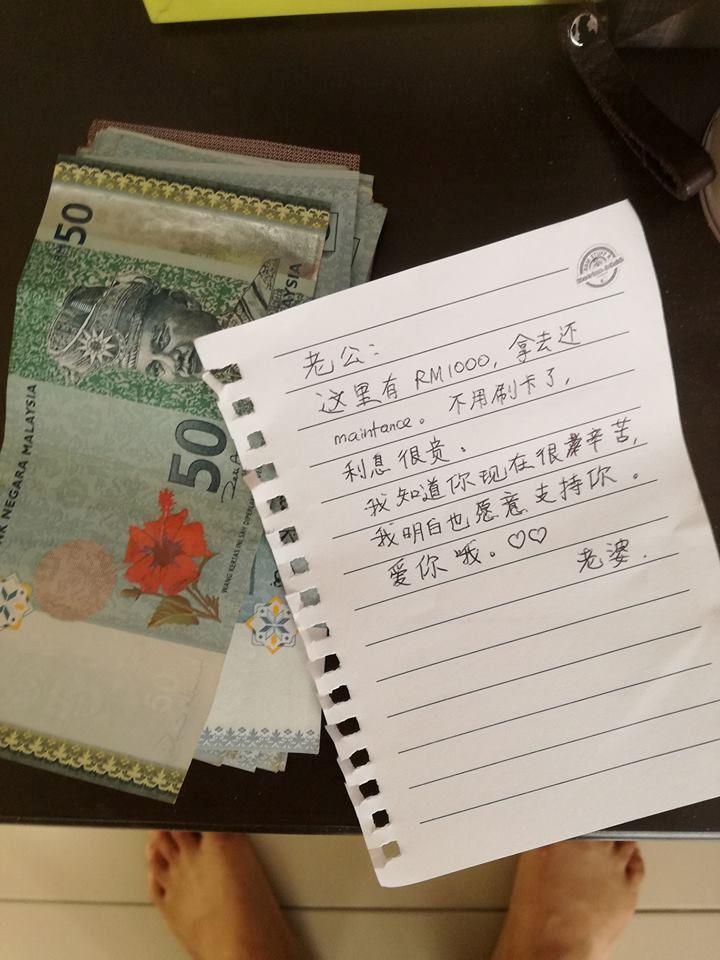 50
MALAYSIA
50
BANK NEGARA MALAYSIA
WANG KERTAS INI SAH DIPERLAKU
老公：
这里有 RM1000，拿去还
maintance。不用刷卡了，
利息很贵。
我知道你现在很辛苦，
我明白也愿意支持你。
爱你哦。♡♡
老婆.